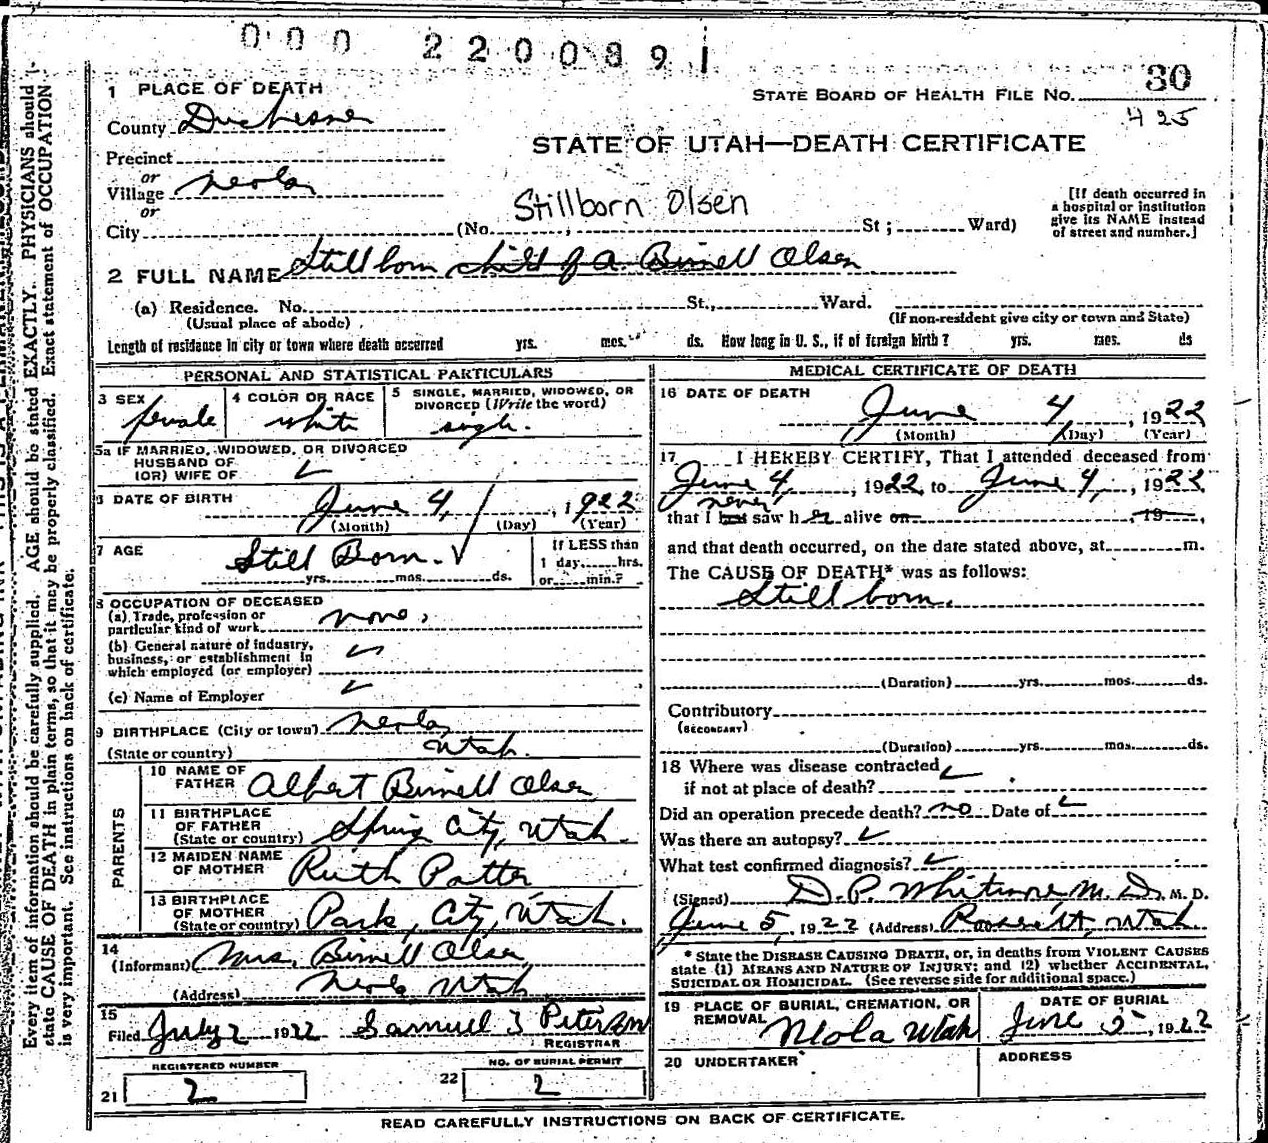 000 2200891
1 PLACE OF DEATH
STATE BOARD OF HEALTH FILE NO. 30
425
County Duchesne
STATE OF UTAH—DEATH CERTIFICATE
Precinct
or
Village Neola
or
Stillborn Olsen
City (No. , St ; Ward)
[If death occurred in
a hospital or institution
give its NAME instead
of street and number.]
2 FULL NAME Stillborn child of A. Birnell Olsen
(a) Residence. No. St., Ward.
(Usual place of abode) (If non-resident give city or town and State)
Length of residence in city or town where death occurred yrs. mos. ds. How long in U. S., if of foreign birth? yrs. mos. ds
PERSONAL AND STATISTICAL PARTICULARS
3 SEX female
4 COLOR OR RACE white
5 SINGLE, MARRIED, WIDOWED, OR
DIVORCED (Write the word)
single.
5a IF MARRIED, WIDOWED, OR DIVORCED
HUSBAND OF
(OR) WIFE OF
6 DATE OF BIRTH June 4, 1922
(Month) (Day) (Year)
7 AGE Still Born.
yrs. mos. ds.
If LESS than
1 day hrs.
or min.?
8 OCCUPATION OF DECEASED
(a) Trade, profession or
particular kind of work none.
(b) General nature of industry,
business, or establishment in
which employed (or employer)
(c) Name of Employer
9 BIRTHPLACE (City or town) Neola,
(State or country) Utah.
PARENTS
10 NAME OF
FATHER Albert Birnell Olsen
11 BIRTHPLACE
OF FATHER
(State or country) Spring City, Utah.
12 MAIDEN NAME
OF MOTHER Ruth Potter
13 BIRTHPLACE
OF MOTHER
(State or country) Park City, Utah.
14
(Informant) Mrs. Birnell Olsen
(Address) Neola Utah
15
Filed July 2 1922 Samuel J Peterson
REGISTRAR
REGISTERED NUMBER
21 2
NO. OF BURIAL PERMIT
22 2
MEDICAL CERTIFICATE OF DEATH
16 DATE OF DEATH
June 4, 1922
(Month) (Day) (Year)
17 I HEREBY CERTIFY, That I attended deceased from
June 4, 1922, to June 4, 1922
never
that I last saw her alive on , 19
and that death occurred, on the date stated above, at m.
The CAUSE OF DEATH* was as follows:
Still born.
(Duration) yrs. mos. ds.
Contributory
(SECONDARY)
(Duration) yrs. mos. ds.
18 Where was disease contracted
if not at place of death?
Did an operation precede death? no Date of
Was there an autopsy?
What test confirmed diagnosis?
(Signed) D. P. Whitmore, M. D., M. D.
June 5, 1922 (Address) Roosevelt, Utah.
* State the DISEASE CAUSING DEATH, or, in deaths from VIOLENT CAUSES
state (1) MEANS AND NATURE OF INJURY; and (2) whether ACCIDENTAL,
SUICIDAL OR HOMICIDAL. (See reverse side for additional space.)
19 PLACE OF BURIAL, CREMATION, OR
REMOVAL Neola Utah
DATE OF BURIAL
June 5, 1922
20 UNDERTAKER
ADDRESS
READ CAREFULLY INSTRUCTIONS ON BACK OF CERTIFICATE.
Every item of information should be carefully supplied. AGE should be stated EXACTLY. PHYSICIANS should
state CAUSE OF DEATH in plain terms, so that it may be properly classified. Exact statement of OCCUPATION
is very important. See instructions on back of certificate.